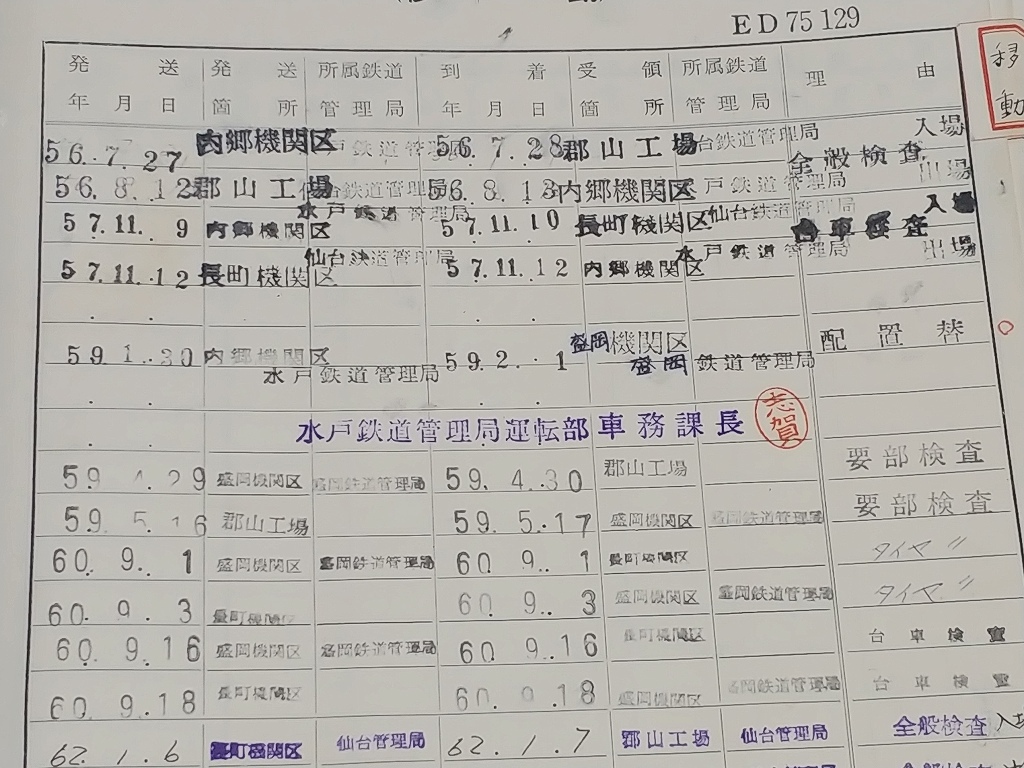 ED 75 129
移動
発送年月日 発送箇所 所属鉄道管理局 到着年月日 受領箇所 所属鉄道管理局 理由
56. 7. 27 内郷機関区 水戸鉄道管理局 56. 7. 28 郡山工場 仙台鉄道管理局 全般検査 入場
56. 8. 12 郡山工場 仙台鉄道管理局 56. 8. 13 内郷機関区 水戸鉄道管理局 出場
57. 11. 9 内郷機関区 水戸鉄道管理局 57. 11. 10 長町機関区 仙台鉄道管理局 台車検査 入場
57. 11. 12 長町機関区 仙台鉄道管理局 57. 11. 12 内郷機関区 水戸鉄道管理局 出場
59 1. 30 内郷機関区 水戸鉄道管理局 59 2. 1 盛岡機関区 盛岡鉄道管理局 配置替
水戸鉄道管理局運転部車務課長 志賀
59. 4. 29 盛岡機関区 盛岡鉄道管理局 59. 4. 30 郡山工場 要部検査
59. 5. 16 郡山工場 59. 5. 17 盛岡機関区 盛岡鉄道管理局 要部検査
60. 9. 1 盛岡機関区 盛岡鉄道管理局 60. 9. 1 長町機関区 タイヤ 〃
60. 9. 3 長町機関区 60. 9. 3 盛岡機関区 盛岡鉄道管理局 タイヤ 〃
60. 9. 16 盛岡機関区 盛岡鉄道管理局 60. 9. 16 長町機関区 台車検査
60. 9. 18 長町機関区 60. 9. 18 盛岡機関区 盛岡鉄道管理局 台車検査
62. 1. 6 長町機関区 仙台管理局 62. 1. 7 郡山工場 仙台管理局 全般検査 入場